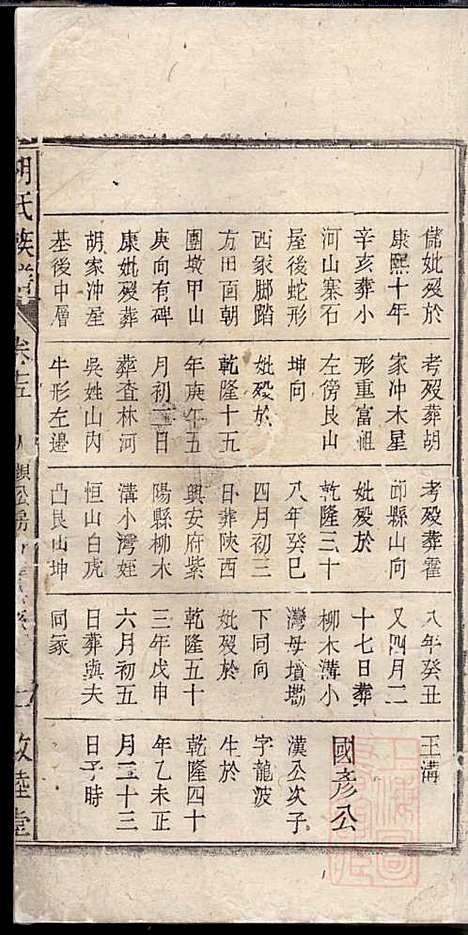 儲妣殁於
康熙十年
辛亥葬小
河山寨石
屋後蛇形
西冢脚踏
方田面朝
團墩甲山
庚向有碑
康妣殁葬
胡家冲屋
基後中層
考殁葬胡
家冲木星
形重富祖
左傍艮山
坤向
妣殁於
乾隆十五
年庚午五
月初二日
葬查林河
吳姓山内
牛形左邊
考殁葬霍
邱縣山向
妣殁於
乾隆三十
八年癸巳
四月初三
日葬陝西
興安府紫
陽縣柳木
溝小灣姪
恒山白虎
凸艮山坤
八年癸丑
又四月二
十七日葬
柳木溝小
灣母墳墈
下同向
妣殁於
乾隆五十
三年戊申
六月初五
日葬與夫
同冢
王溝
國彦公
漢公次子
字龍波
生於
乾隆四十
年乙未正
月二十三
日子時
胡氏族譜
敦睦堂